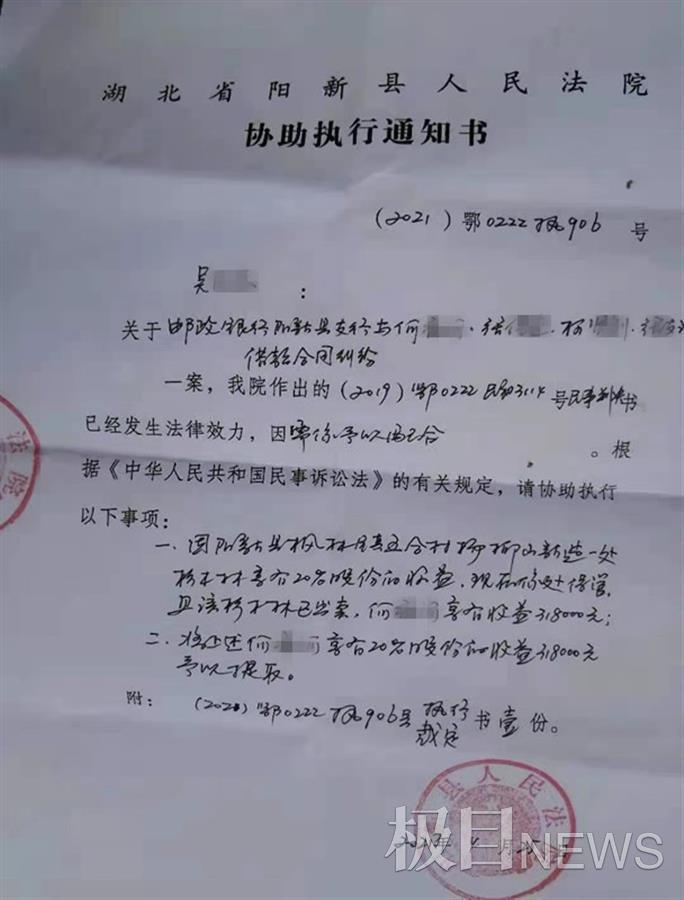 湖北省阳新县人民法院
协助执行通知书
(2021)鄂0222执906号
吴 :
关于邮政银行阳新县支行与何 、 、柯 、
借款合同纠纷
一案，我院作出的(2019)鄂0222民初3114号民事判决书
已经发生法律效力，因 予以 。根
据《中华人民共和国民事诉讼法》的有关规定，请协助执行
以下事项：
一、因阳新县枫林镇五合村杨柳山新造一处
杉木林享有20%股份的收益，现在你处保管，
且该杉木林已出卖，何 享有收益318000元；
二、将上述何 享有20%股份的收益318000元
予以提取。
附：(2021)鄂0222执906号执行
裁定书壹份。
县人民法
2021年4月25日
法院
极目NEWS